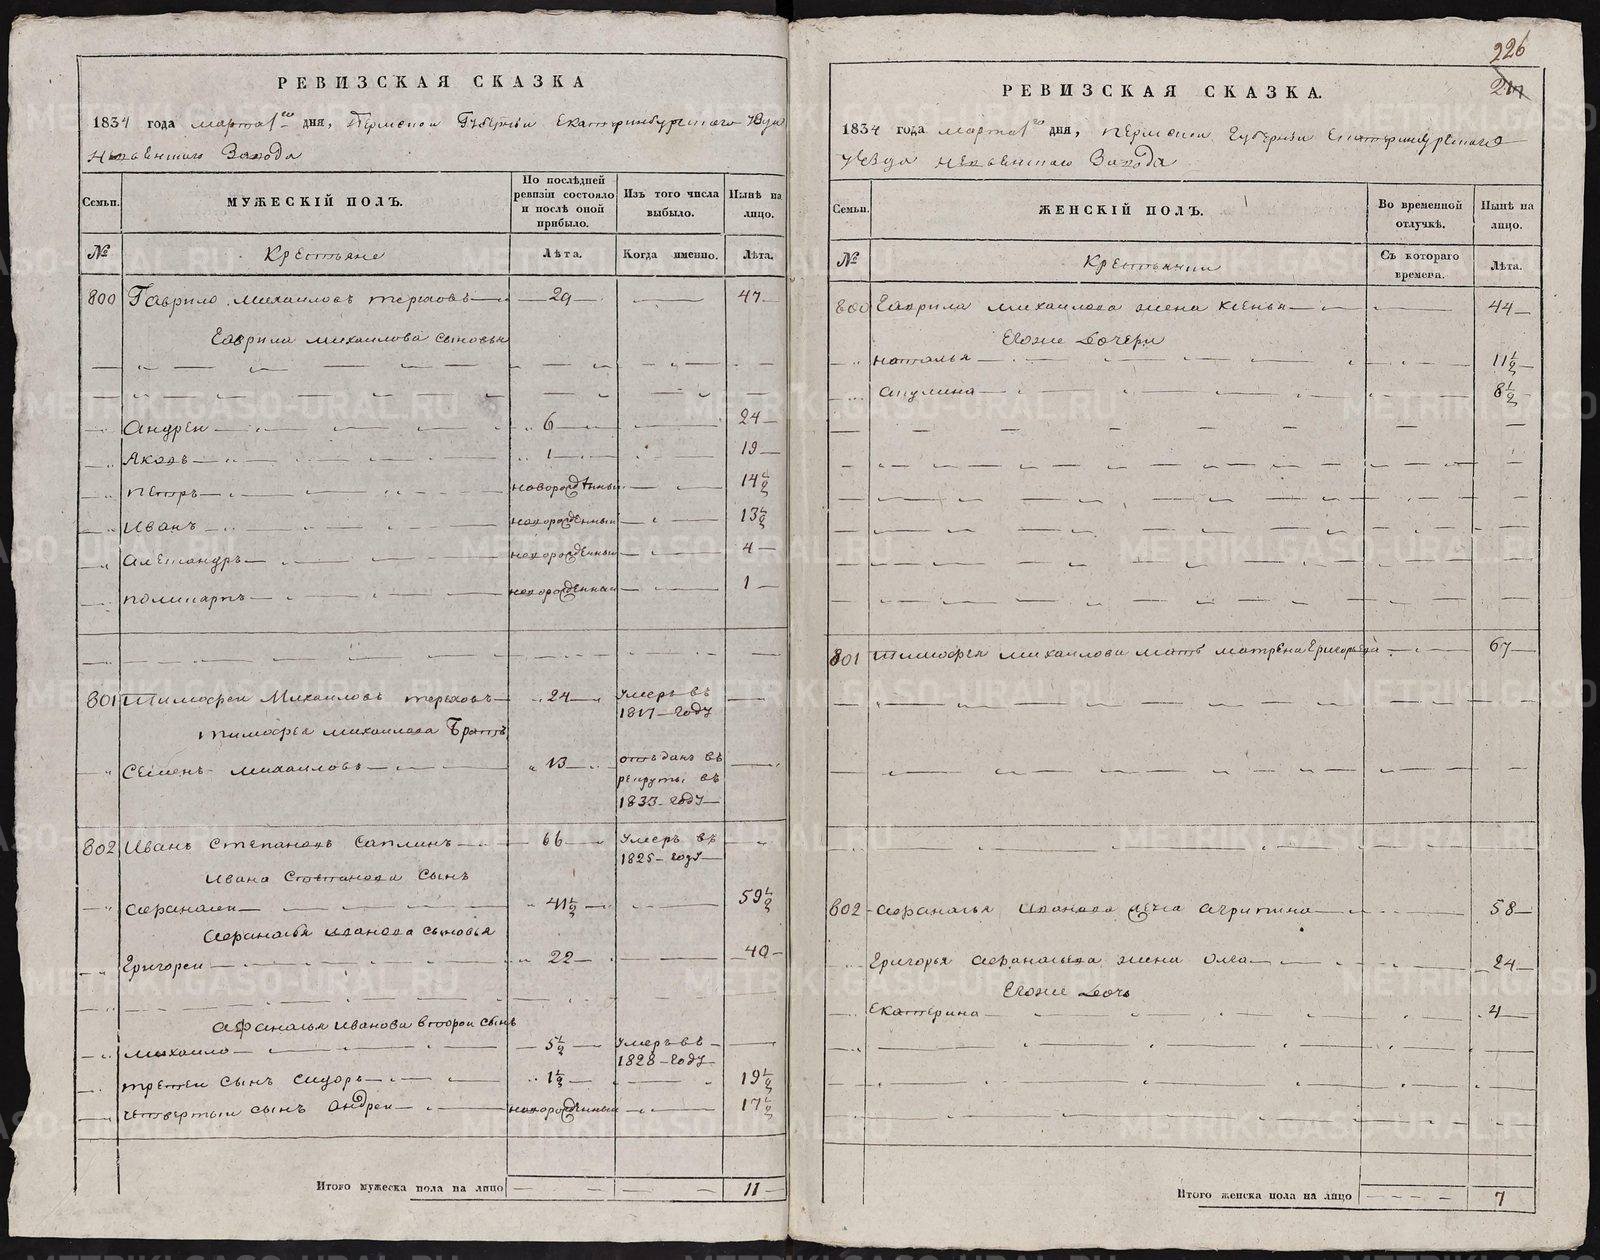 РЕВИЗСКАЯ СКАЗКА
1834 года марта 1го дня, Пермской Губернии Екатеринбургского Уез
Завода
Семьи.
МУЖЕСКІЙ ПОЛЪ.
По послѣдней ревизіи состояло и послѣ оной прибыло.
Изъ того числа выбыло.
Нынѣ на лицо.
№
Крестьяне
Лѣта.
Когда именно.
Лѣта.
800 Гаврило Михаиловъ Тереховъ 29 47
Гаврила Михаилова сыновья
Андреи 6 24
Яковъ 1 19
Петръ новорожденный 14½
Иванъ новорожденный 13½
Александръ новорожденный 4
Поликарпъ новорожденный 1
801 Тимофеи Михаиловъ Тереховъ 24 умеръ въ
1817 году
Тимофея Михаилова Братъ
Семенъ Михаиловъ 13 отъданъ въ
рекруты въ
1833 году
802 Иванъ Степановъ Саплинъ 66 умеръ въ
1825 году
Ивана Степанова сынъ
Афанасеи 41½ 59½
Афанасья Иванова сыновья
Григореи 22 40
Афанасья Иванова второи сынъ
Михаило 5½ умеръ въ
1828 году
третеи сынъ Сидоръ 1½ 19½
четвертыи сынъ Андреи новорожденный 17½
Итого мужеска пола на лицо 11
226
РЕВИЗСКАЯ СКАЗКА.
1834 года марта 1го дня, Пермской Губернии Екатеринбургского
Уезда Завода
Семьи.
ЖЕНСКІЙ ПОЛЪ.
Во временной отлучкѣ.
Нынѣ на лицо.
№
Крестьянки
Съ котораго времени.
Лѣта.
800 Гаврила Михаилова жена Ксенья 44
Егоже дочери
Наталья 11½
Акулина 8½
801 Тимофея Михаилова мать Матрена Григорьева 67
802 Афанасья Иванова жена Агрипина 58
Григорья Афанасьева жена Олга 24
Егоже дочь
Екатерина 4
Итого женска пола на лицо 7
METRIKI.GASO-URAL.RU